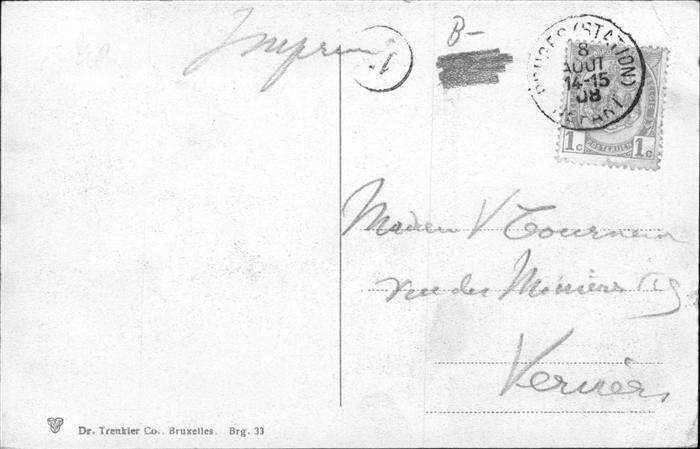 B-
1
BRUGES (STATION)
8
AOUT
14-15
08
DEPART
1c POSTERIJEN 1c
V Tournun
rue des
Verviers
Dr. Trenkler Co., Bruxelles. Brg. 33